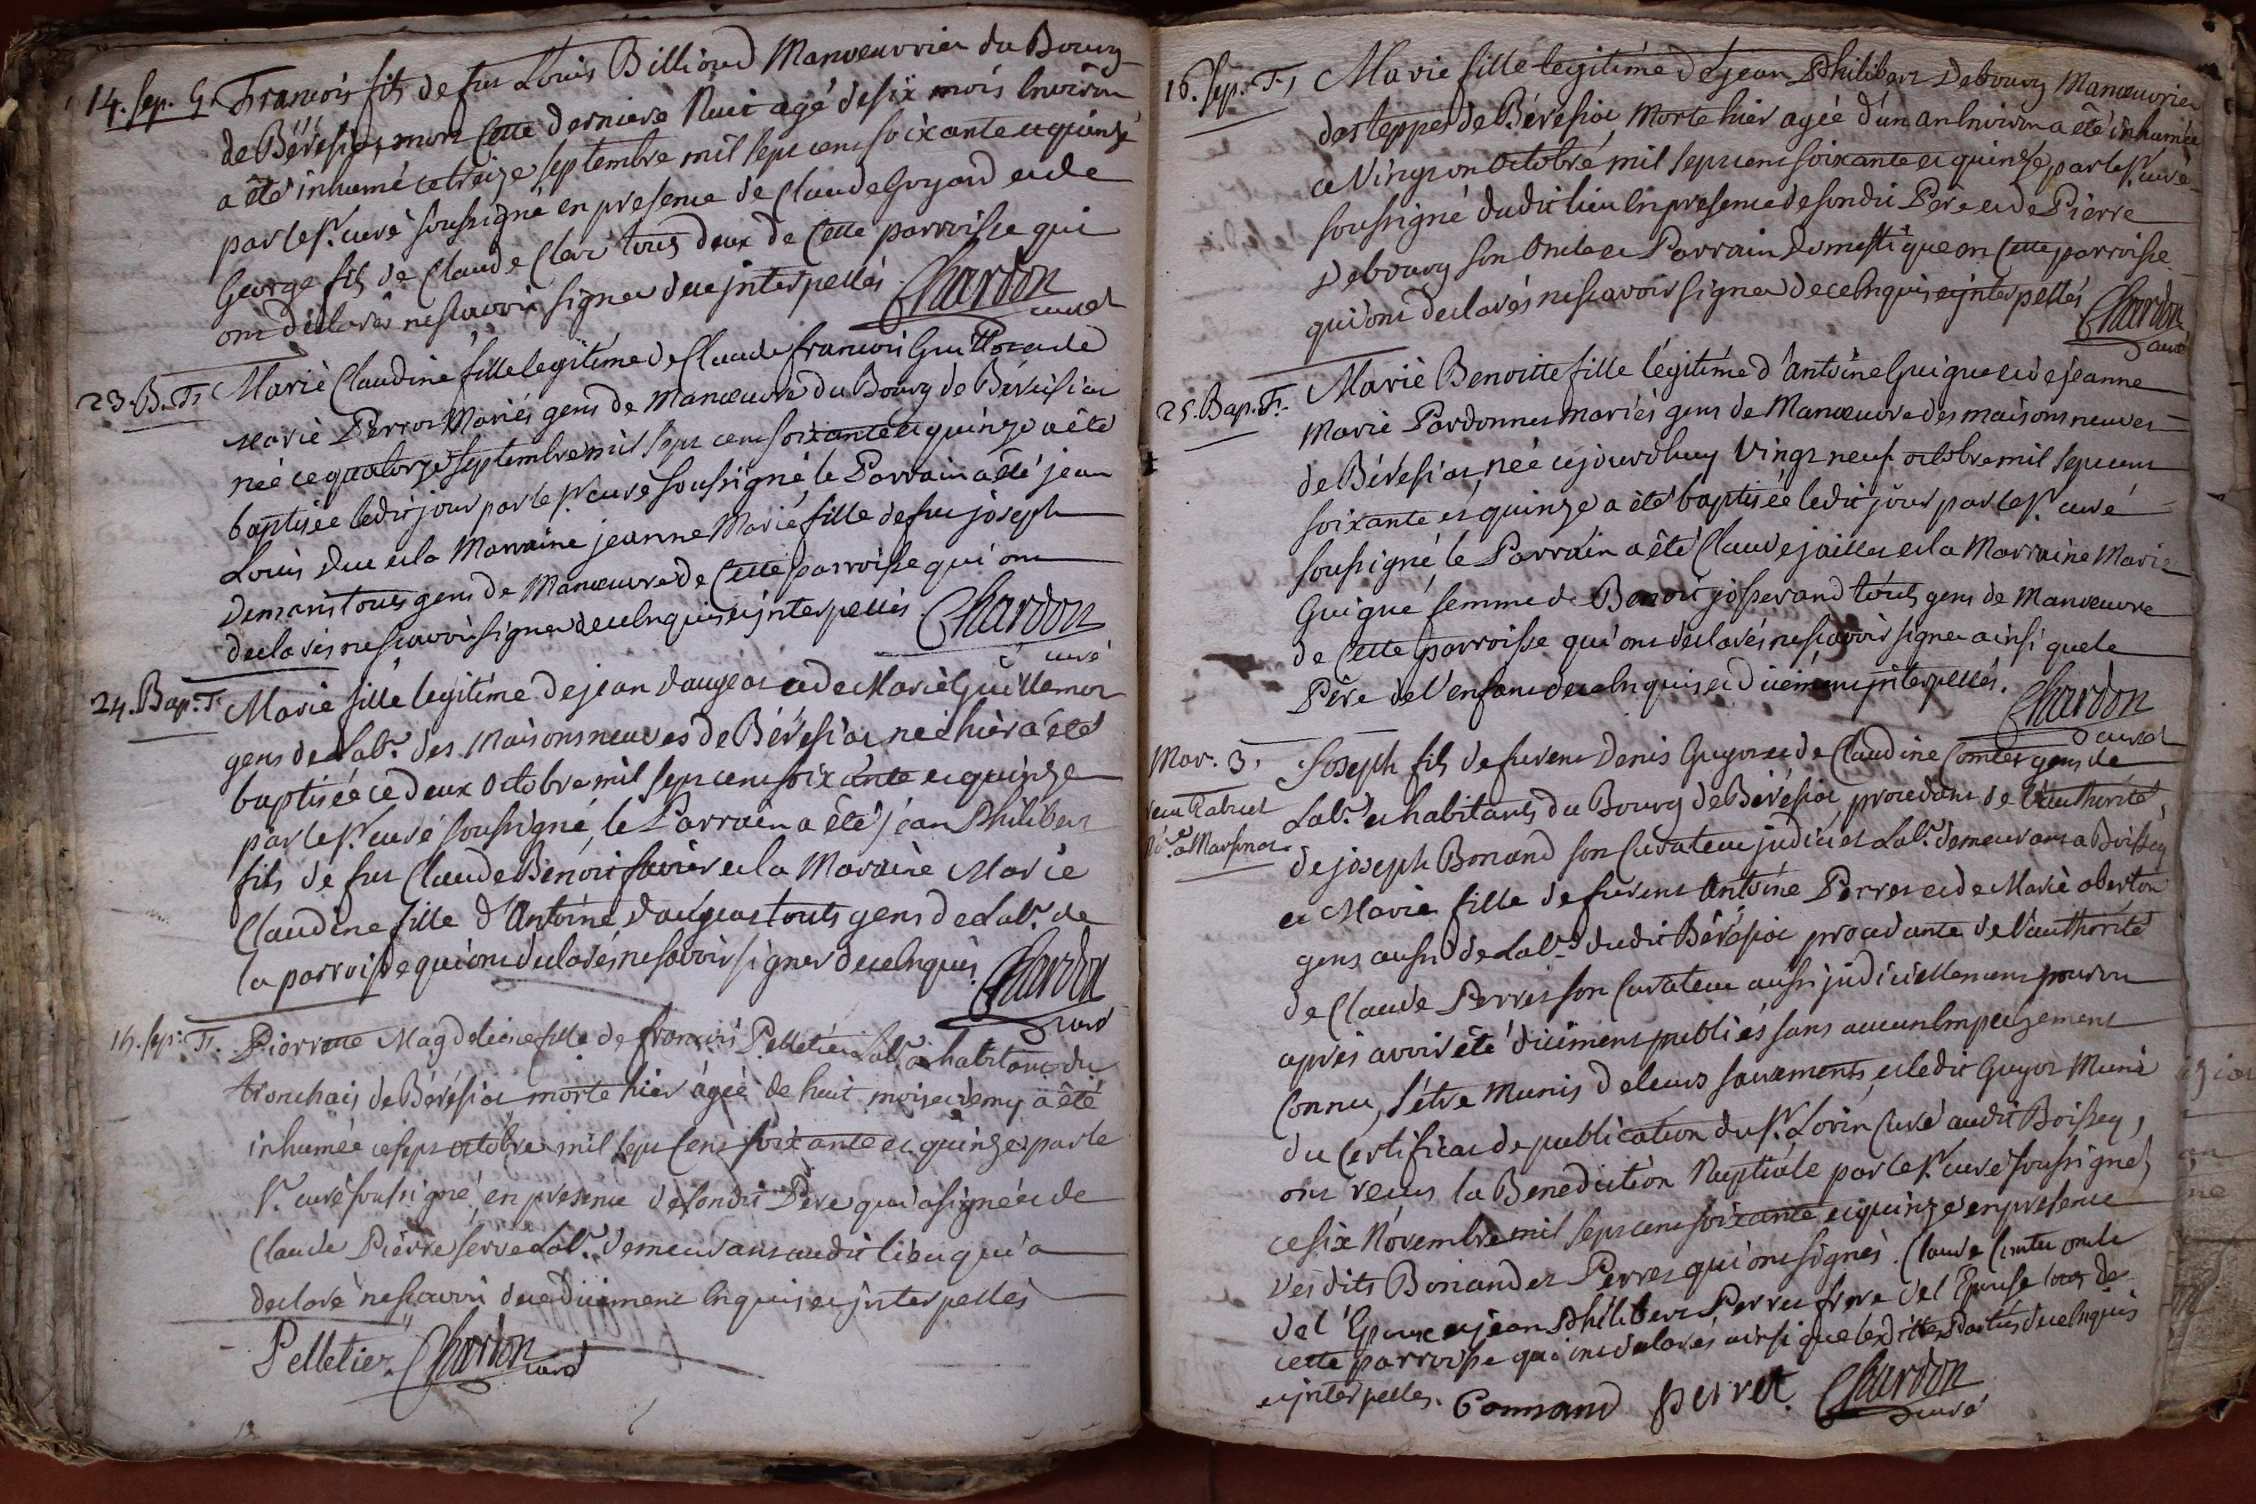 14. sep. G. François fils de feu Louis Billioud Manoeuvrier du Bourg
de Béréisia, mort cette derniere Nuit agé de six mois environ
a été inhumé ce treize septembre mil sept cent soixante et quinze
par le Sr. curé soussigné en presence de Claude Goyard et de
George fils de Claude Clerc tous deux de cette parroisse qui
ont déclarés ne scavoir signer de ce jnterpellés. Chardon
curé
23. B. F. Marie Claudine fille legitime de Claude françois Guillot et de
Marie Perret Mariés gens de manoeuvre du Bourg de Béréisiat
née ce quatorze septembre mil sept cent soixante et quinze a été
baptisée ledit jour par le Sr. curé soussigné le Parrain a été jean
Louis Duc et la Marraine jeanne Marie fille de feu joseph
tous gens de Manoeuvre de cette parroisse qui ont
declarés ne scavoir signer de ce Enquis et jnterpellés Chardon
curé
24. Bap. F. Marie fille legitime de jean Daugeat et de Marie Guillemot
gens de Labr. des Maisons neuves de Bérésiat née hier a été
baptisée ce deux Octobre mil sept cent soixante et quinze
par le Sr. curé soussigné, le Parrain a été jéan Philibert
fils de feu Claude Benoit et la Maraine Marie
Claudine fille d'Antoine Daugeat touts gens de Labr. de
la parroisse qui ont declarés ne scavoir signer de ce Enquis. Chardon
curé
15. sep. F. Pierrette Magdeleine fille de françois Pelletier Labr. et habitant du
tronchais de Bérésiat morte hier ágée de huit mois et demy a été
inhumée ce sept octobre mil sept cent soixante et quinze par le
Sr. curé soussigné, en presence de sondit Pere qui a signé et de
Claude Pierre serve Labr. demeurant audit lieu qui a
declaré ne scavoir de ce duement Enquis et jnterpellés
Pelletier Chardon curé
16. Sep. F. Marie fille legitime de jean Philibert Debourg Manoeuvrier
des teppes de Bérésiat, Morte hier agée d'un an Environ a été inhumée
ce Vingt un Octobre mil sept cent soixante et quinze par le Sr. curé
soussigné dudit lieu En presence de sondit Père et de Pierre
Debourg son Oncle et Parrain Domestique en cette parroisse
qui ont declarés ne scavoir signer de ce Enquis et jnterpellés Chardon
curé
25. Bap. F. Marie Benoitte fille légitime d'Antoine Guigue et de jeanne
Marie Pardonnet mariés gens de Manoeuvre des maisons neuves
de Bérésiat, née cejourdhuy Vingt neuf octobre mil sept cent
soixante et quinze a été baptisée ledit jour par le Sr. curé
soussigné le Parrain a été Claude jaillet et la Marraine Marie
Guigue femme de Benoit josserand touts gens de Manoeuvre
de cette parroisse qui ont declarés ne scavoir signer ainsi que le
Père de l'enfant de ce Enquis et duement jnterpellés. Chardon
curé
Mar. 3. Joseph fils de furent Denis Guyot et de Claudine Comtet gens de
Labr. et habitants du Bourg de Bérésiat, procedant de l'authorité
à Marsonas
de joseph Bonand son curateur judiciel Labr. demeurant a Boissey
et Marie fille de furent Antoine Perret et de Marie oberton
gens aussi de Labr. dudit Bérésiat procedante de l'authorité
de Claude Perret son curateur aussi judiciellement pourvu
après avoir été duement publiés sans aucun Empechement
connu, s'être Munis de leurs sacrements, et ledit Guyot Muni
du certificat de publication du Sr. Lorin curé audit Boissey,
ont recus la Benediction Nuptiale par le Sr. curé soussigné,
ce six Novembre mil sept cent soixante et quinze en presence
desdits Bonand et Perret qui ont signés. Claude Comtet oncle
de l'Epoux et jean Philibert Perret frere de l'Epouse tous de
cette parroisse qui ont declarés ainsi que lesdittes Parties de ce Enquis
et jnterpellés. Bonnand Perret. Chardon
curé